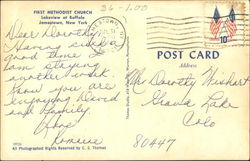 FIRST METHODIST CHURCH
Lakeview at Buffalo
Jamestown, New York
26-1.00
10c
Dear Dorothy,
Having such
good time
am staying
another week.
Know you are
enjoying David
and family.
Love
POST CARD
Address
Mrs Dorothy
Grand Lake
Colo
80447
All Photographed Rights Reserved by C. E. Thomas